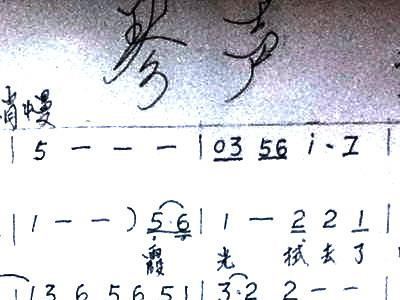 琴声
稍慢
| 5 - - - | 03 56 i · 7 |
| 1 - - ) 5·6 | 1 - 2 2 1 |
霞 光 拭去了
(3 6 5 6 5 | 3·2 2 - - |